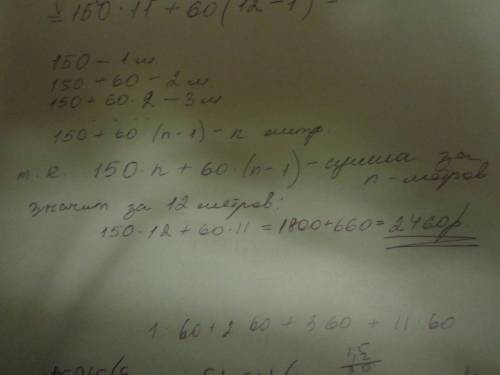 150 · 11 + 60 (12 - 1) =
150 - 1 м.
150 + 60 - 2 м
150 + 60 · 2 - 3 м.
150 + 60 (n-1) - n метр.
т. е. 150 · n + 60 · (n-1) - сумма за
n - метров
значит за 12 метров:
150 · 12 + 60 · 11 = 1800 + 660 = 2460р.
1 · 60 + 2 60 + 3 60 + 11 · 60